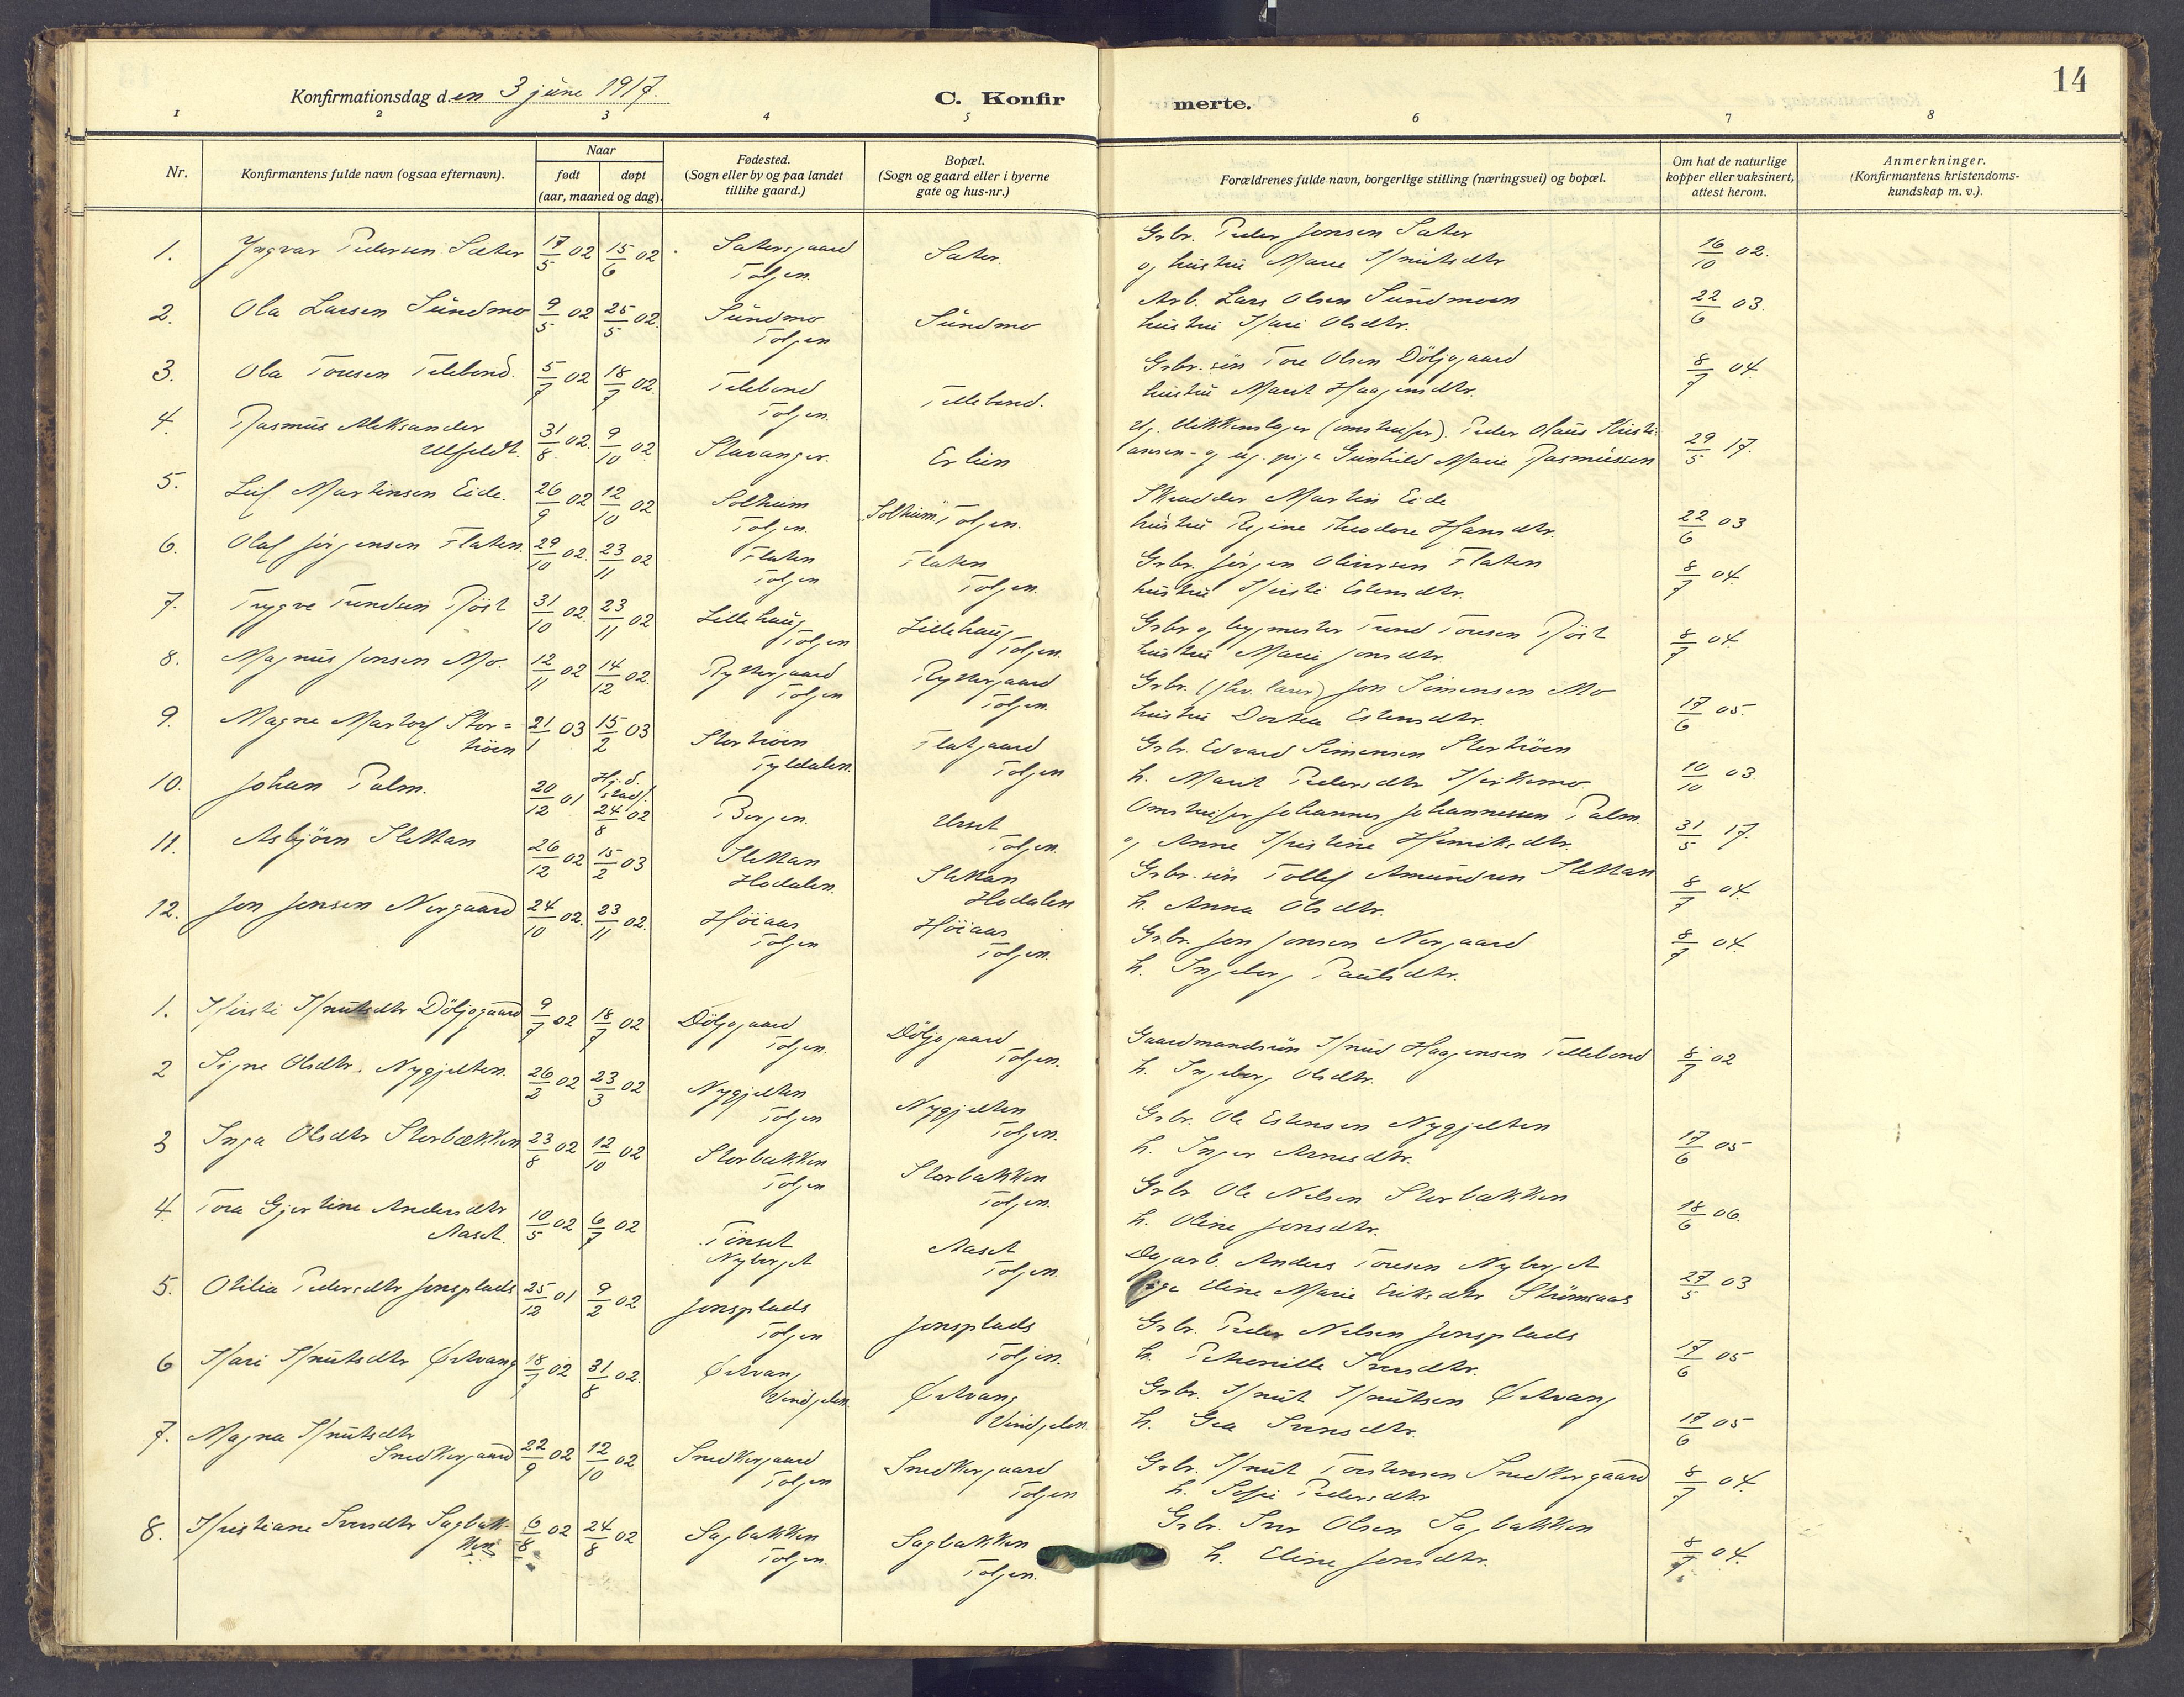 14
Konfirmationsdag den 3 june 1917.
C. Konfirmerte.
1 2 3 4 5 6 7 8
Nr.
Konfirmantens fulde navn (ogsaa efternavn).
Naar
født døpt
(aar, maaned og dag).
Fødested.
(Sogn eller by og paa landet
tillike gaard.)
Bopæl.
(Sogn og gaard eller i byerne
gate og hus-nr.)
Forældrenes fulde navn, borgerlige stilling (næringsvei) og bopæl.
Om hat de naturlige
kopper eller vaksinert,
attest herom.
Anmerkninger.
(Konfirmantens kristendoms-
kundskap m. v.).
1. Yngvar Pedersen Sæter 17/5 02 15/6 02 Sætersgaard Sæter. Grbr. Peder Jonsen Sæter 16/10 02.
Tolgen. og hustru Marie Knutsdtr
2. Ola Larsen Sundmo 9/5 02 25/5 02. Sundmo Sundmo Arb. Lars Olsen Sundmoen 22/6 03.
Tolgen hustru Kari Olsdtr.
3. Ola Toresen Telebond. 5/7 02 18/7 02. Telebond Tellebond. Grbr. sön Tore Olsen Döljogaard 8/7 04.
Tolgen. hustru Marit Haagensdtr.
4. Rasmus Aleksander 31/8 02. 9/10 02. Stavanger. Erlien Ug. blikkenslager (omstreifer). Peder Olaus Kristi- 29/5 17.
Ulfeldt. ansen - og ug. pige Gunhild Marie Rasmussen
5. Leif Martinsen Eide. 26/9 02 12/10 02 Solheim Solheim Tolgen. Skrædder Martin Eide 22/6 03
Tolgen. hustru Regine Theodore Hansdtr.
6. Olaf Jörgensen Flaten. 29/10 02. 23/11 02 Flaten Flaten Grbr. Jörgen Olivirsen Flaten 8/7 04.
Tolgen Tolgen. hustru Kirsti Estensdtr.
7. Trygve Trondsen Röst 31/10 02. 23/11 02 Lillehaug Lillehaug Grbr og bygmester Trond Toresen Röst 8/7 04.
Tolgen Tolgen. hustru Marie Jonsdtr.
8. Magnus Jonsen Mo. 12/11 02 14/12 02. Ryttergaard Ryttergaard Grbr. (fhv. lærer) Jon Simensen Mo 17/6 05.
Tolgen Tolgen. hustru Dortea Estensdtr.
9. Magne Martolf Stor= 21/1 03 15/2 03 Storhröen Flatgaard Grbr. Edvard Simensen Storhröen 10/10 03.
hröen Tyldalen. Tolgen h. Marit Pedersdtr Kirkemo
10. Johan Palm. 20/12 01 Hj. d. stadf. 24/8 02 Bergen. Urset Omstreifer Johannes Johannessen Palm. 31/5 17.
Tolgen. og Anne Kristine Henriksdtr.
11. Asbjörn Slettan 26/12 02 15/2 03 Slettan Slettan Grbr. sön Tollef Amundsen Slettan 8/7 04.
Hodalen. Hodalen h. Anna Olsdtr.
12. Jon Jonsen Nergaard 24/10 02. 23/11 02. Höiaas Höiaas Grbr. Jon Jonsen Nergaard 8/7 04
Tolgen Tolgen. h. Ingeborg Paulsdtr.
1. Kirsti Knutsdtr Döljogaard 9/7 02 18/7 02 Döljogaard Döljogaard Gaardmandssön Knud Haagensen Tellebond 8/7 02
Tolgen. Tolgen. h. Ingeborg Olsdtr.
2 Signe Olsdtr. Nygjelten. 26/2 02 23/3 02 Nygjelten Nygjelten Grbr. Ole Estensen Nygjelten 17/6 05
Tolgen Tolgen. h. Inger Arnesdtr.
3 Inga Olsdtr Storbækken 23/8 02 12/10 02 Storbækken Storbækken Grbr Ole Nelsen Storbækken 18/6 06.
Tolgen Tolgen. h. Oline Jonsdtr.
4. Tora Gjertine Andersdtr 10/5 02 6/7 02 Tönset Aaset Dagarb. Anders Toresen Nyberget 27/5 03
Aaset. Nyberget Tolgen. pige Eline Marie Eriksdtr Strömsaas
5. Otilia Pedersdtr Jonsplads 25/12 01 9/2 02 Jonsplads Jonsplads Grbr. Peder Nelsen Jonsplads 17/6 05
Tolgen Tolgen. h. Petronille Svensdtr.
6 Kari Knutsdtr Östvang 18/7 02 31/8 02. Östvang Östvang Grbr. Knut Knutsen Östvang 17/6 05
Vingelen. Vingelen. h. Gea Svensdtr.
7. Magna Knutsdtr 22/9 02 12/10 02 Snedkergaard Snedkergaard Grbr. Knut Torstensen Snedkergaard 8/7 04.
Snedkergaard Tolgen Tolgen h. Sofie Pedersdtr
8. Kristiane Svensdtr Sagbæk- 6/8 02 24/8 02 Sagbækken Sagbækken Grbr. Sven Olsen Sagbækken 8/7 04.
ken Tolgen. Tolgen. h. Eline Jonsdtr.